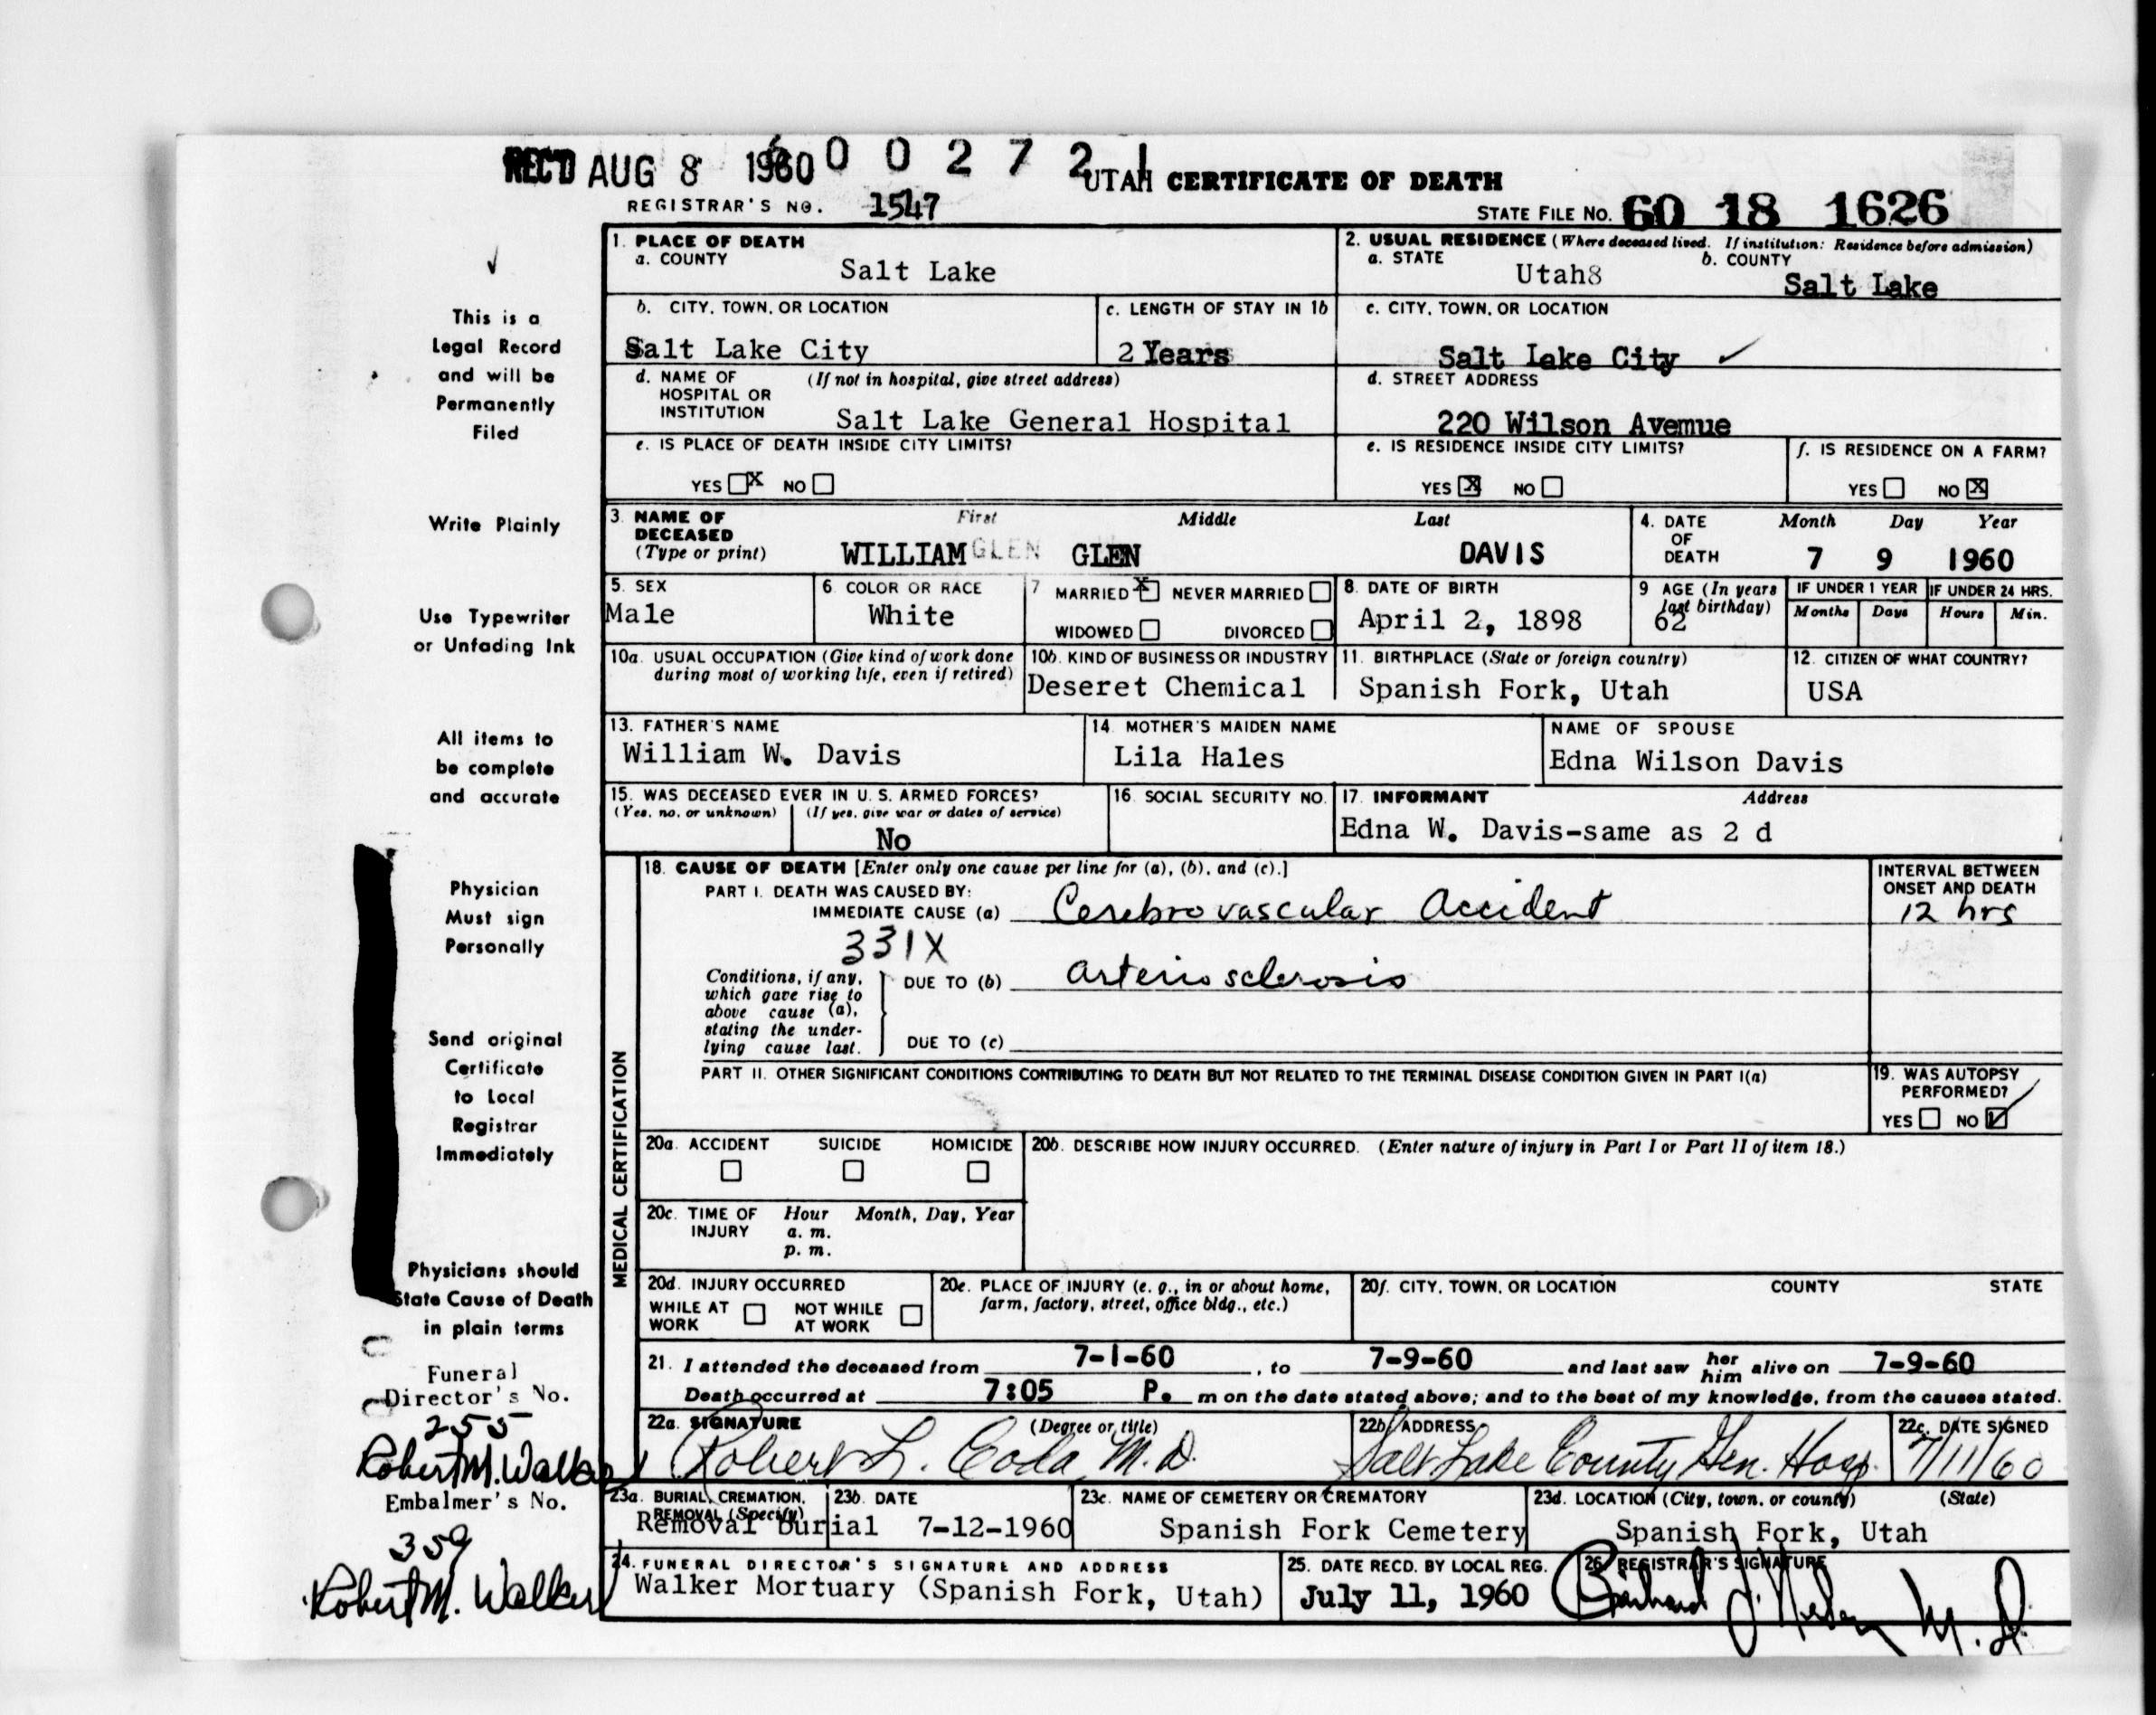 REC'D AUG 8 1960 6 0 0 2 7 2 1
UTAH CERTIFICATE OF DEATH
REGISTRAR'S NO. 1547
STATE FILE NO. 60 18 1626
This is a
Legal Record
and will be
Permanently
Filed
Write Plainly
Use Typewriter
or Unfading Ink
All items to
be complete
and accurate
Physician
Must sign
Personally
Send original
Certificate
to Local
Registrar
Immediately
Physicians should
State Cause of Death
in plain terms
Funeral
Director's No.
255
Robert M. Walker
Embalmer's No.
359
Robert M. Walker
1. PLACE OF DEATH
a. COUNTY
Salt Lake
2. USUAL RESIDENCE (Where deceased lived. If institution: Residence before admission)
a. STATE
Utah8
b. COUNTY
Salt Lake
b. CITY, TOWN, OR LOCATION
Salt Lake City
c. LENGTH OF STAY IN 1b
2 Years
c. CITY, TOWN, OR LOCATION
Salt Lake City ✓
d. NAME OF (If not in hospital, give street address)
HOSPITAL OR
INSTITUTION
Salt Lake General Hospital
d. STREET ADDRESS
220 Wilson Avemue
e. IS PLACE OF DEATH INSIDE CITY LIMITS?
YES X NO
e. IS RESIDENCE INSIDE CITY LIMITS?
YES X NO
f. IS RESIDENCE ON A FARM?
YES NO X
3. NAME OF DECEASED
(Type or print)
First Middle Last
WILLIAM GLEN GLEN DAVIS
4. DATE OF DEATH
Month Day Year
7 9 1960
5. SEX
Male
6. COLOR OR RACE
White
7 MARRIED X NEVER MARRIED
WIDOWED DIVORCED
8. DATE OF BIRTH
April 2, 1898
9 AGE (In years
last birthday)
62
IF UNDER 1 YEAR
Months Days
IF UNDER 24 HRS.
Hours Min.
10a. USUAL OCCUPATION (Give kind of work done
during most of working life, even if retired)
10b. KIND OF BUSINESS OR INDUSTRY
Deseret Chemical
11. BIRTHPLACE (State or foreign country)
Spanish Fork, Utah
12. CITIZEN OF WHAT COUNTRY?
USA
13. FATHER'S NAME
William W. Davis
14. MOTHER'S MAIDEN NAME
Lila Hales
NAME OF SPOUSE
Edna Wilson Davis
15. WAS DECEASED EVER IN U. S. ARMED FORCES?
(Yes, no, or unknown) (If yes, give war or dates of service)
No
16. SOCIAL SECURITY NO.
17. INFORMANT Address
Edna W. Davis-same as 2 d
MEDICAL CERTIFICATION
18. CAUSE OF DEATH [Enter only one cause per line for (a), (b), and (c).]
INTERVAL BETWEEN
ONSET AND DEATH
PART I. DEATH WAS CAUSED BY:
IMMEDIATE CAUSE (a) Cerebrovascular Accident
12 hrs
331X
Conditions, if any,
which gave rise to
above cause (a),
stating the under-
lying cause last.
DUE TO (b) arteriosclerosis
DUE TO (c)
PART II. OTHER SIGNIFICANT CONDITIONS CONTRIBUTING TO DEATH BUT NOT RELATED TO THE TERMINAL DISEASE CONDITION GIVEN IN PART I(a)
19. WAS AUTOPSY
PERFORMED?
YES NO ✓
20a. ACCIDENT SUICIDE HOMICIDE
20b. DESCRIBE HOW INJURY OCCURRED. (Enter nature of injury in Part I or Part II of item 18.)
20c. TIME OF INJURY
Hour Month, Day, Year
a. m.
p. m.
20d. INJURY OCCURRED
WHILE AT WORK NOT WHILE AT WORK
20e. PLACE OF INJURY (e. g., in or about home,
farm, factory, street, office bldg., etc.)
20f. CITY, TOWN, OR LOCATION COUNTY STATE
21. I attended the deceased from 7-1-60, to 7-9-60 and last saw her him alive on 7-9-60
Death occurred at 7:05 P. m on the date stated above; and to the best of my knowledge, from the causes stated.
22a. SIGNATURE (Degree or title)
Robert L. Coda M.D.
22b. ADDRESS
Salt Lake County Gen. Hosp.
22c. DATE SIGNED
7/11/60
23a. BURIAL, CREMATION,
REMOVAL (Specify)
Removal Burial
23b. DATE
7-12-1960
23c. NAME OF CEMETERY OR CREMATORY
Spanish Fork Cemetery
23d. LOCATION (City, town, or county) (State)
Spanish Fork, Utah
24. FUNERAL DIRECTOR'S SIGNATURE AND ADDRESS
Walker Mortuary (Spanish Fork, Utah)
25. DATE RECD. BY LOCAL REG.
July 11, 1960
26. REGISTRAR'S SIGNATURE
M.D.